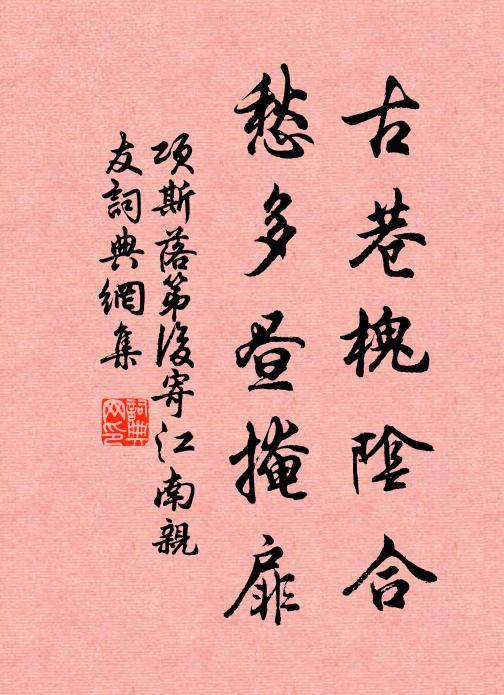 古巷槐陰合
愁多昼掩扉
項斯落第後寄江南親
友詞典網集
詞典
网印